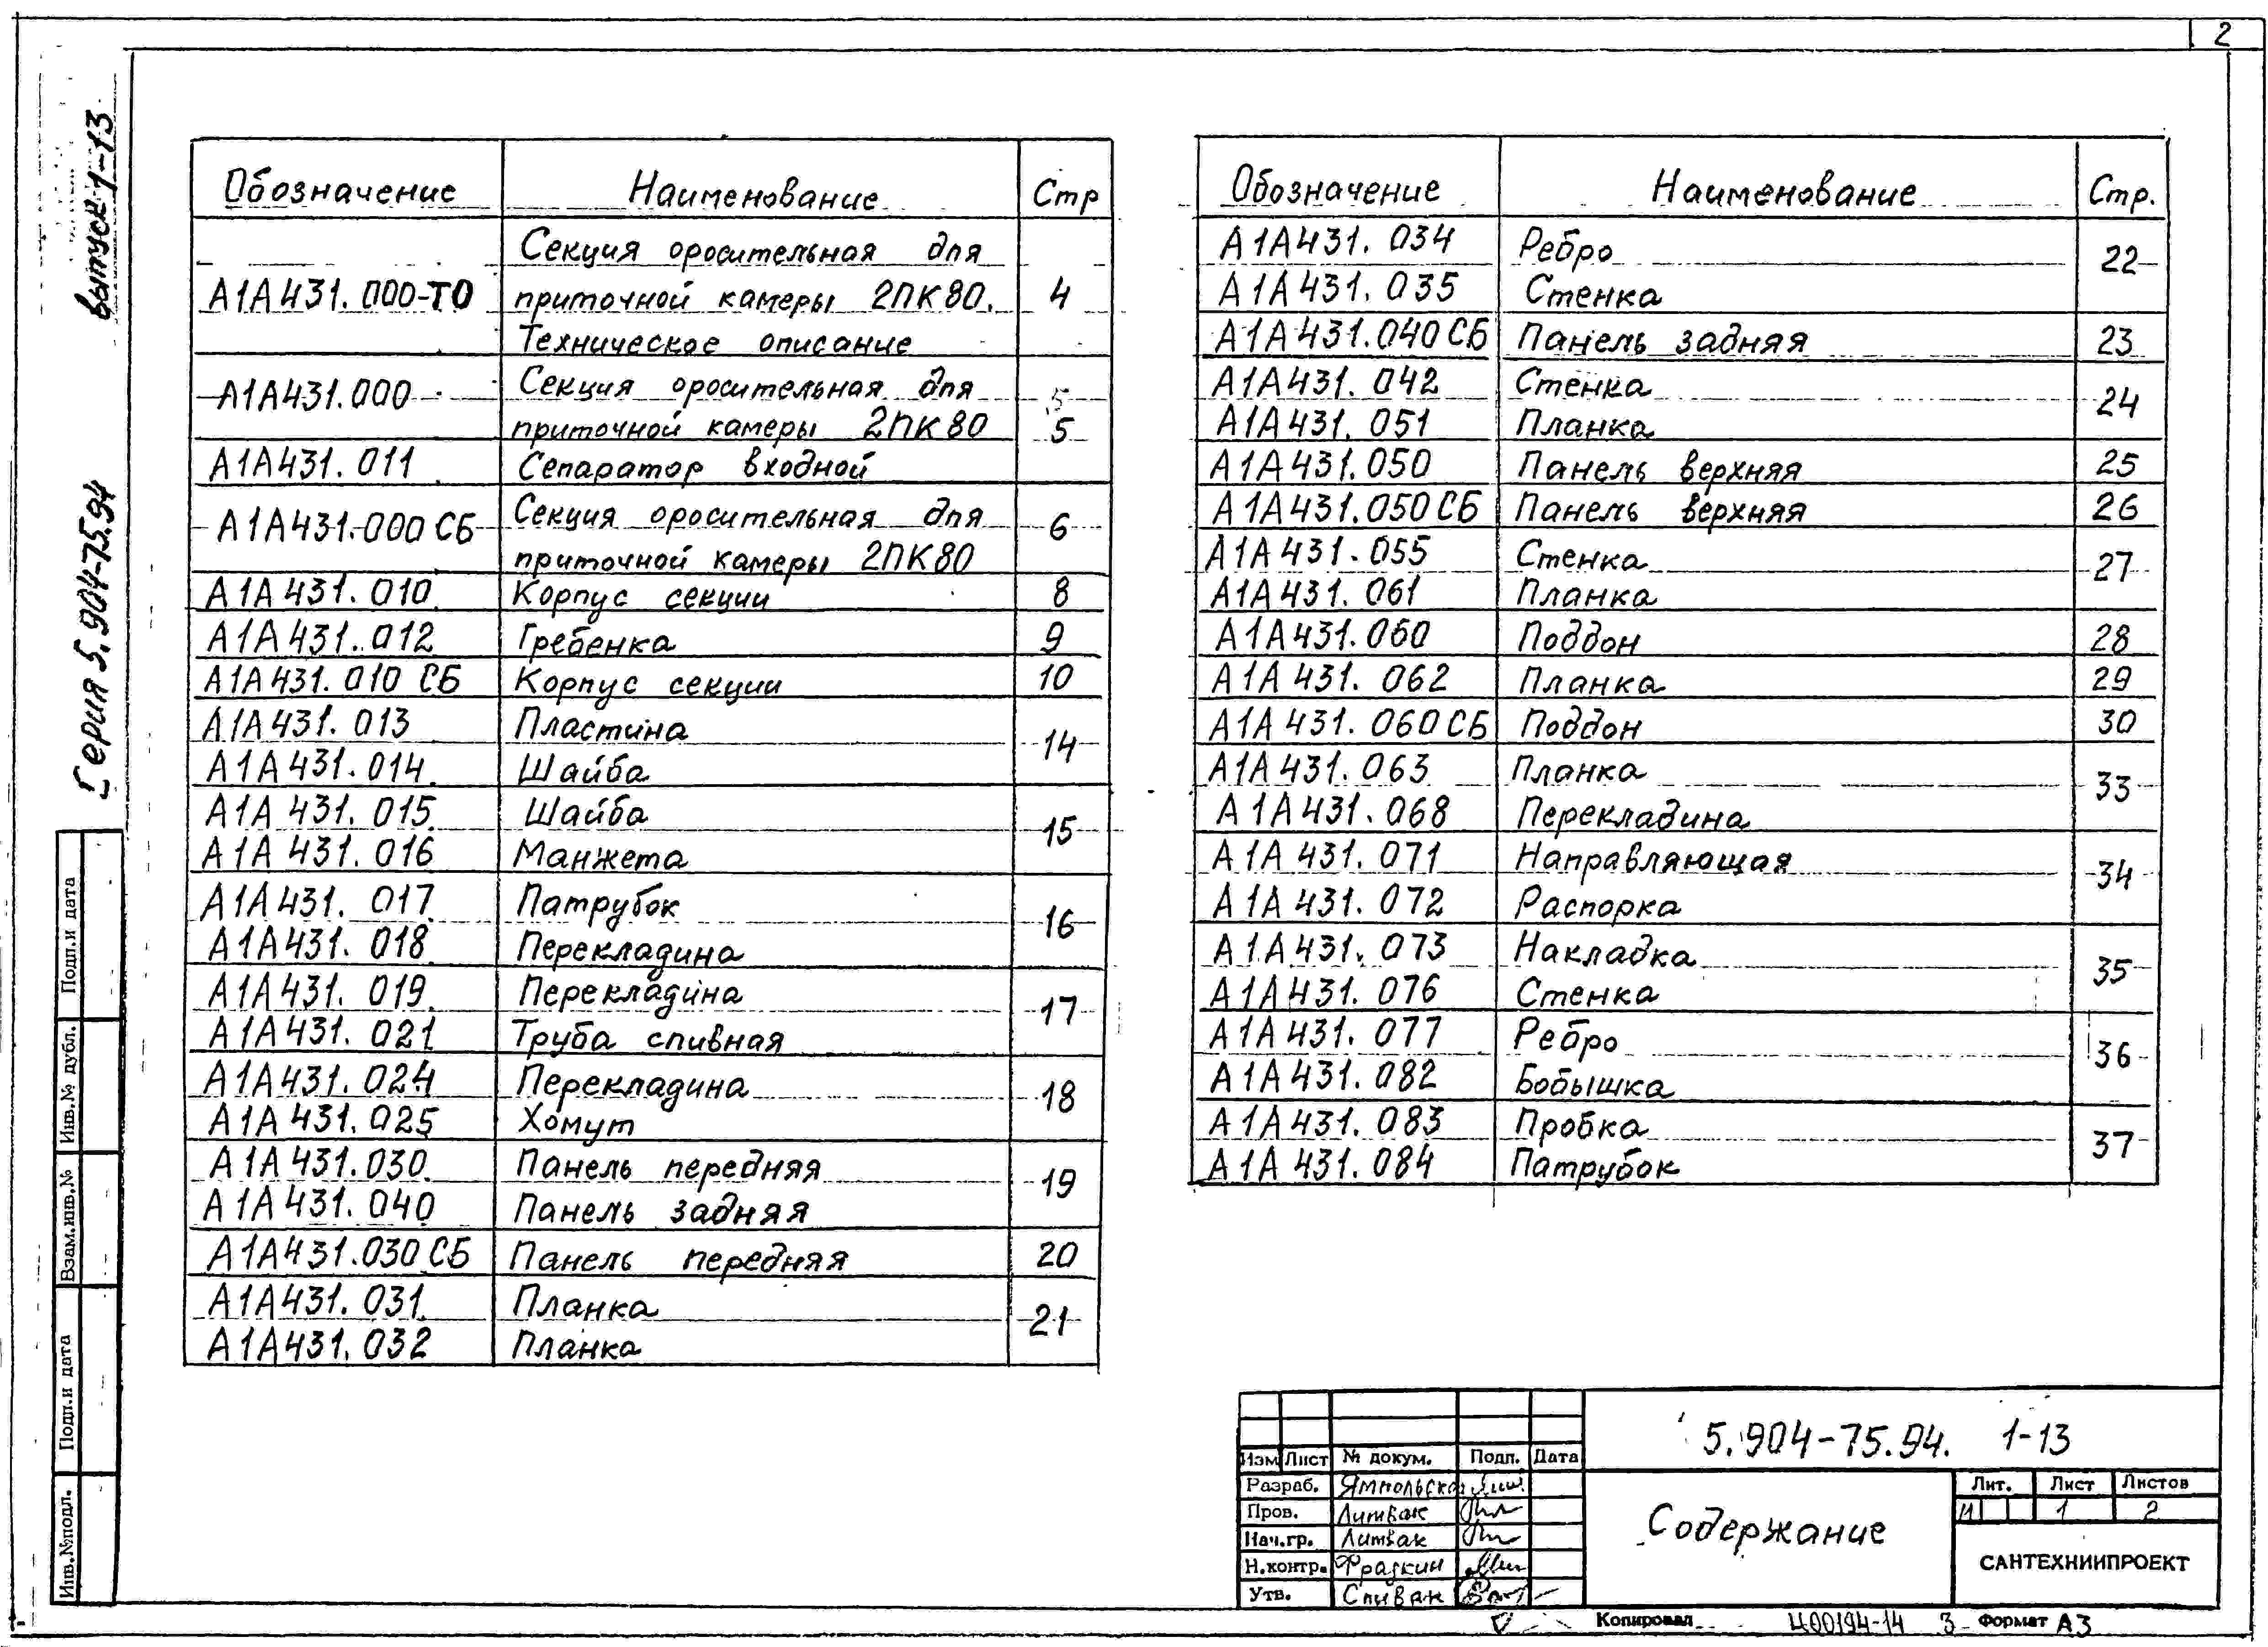 2
выпуск 1-13
Серия 5.904-75.94
Обозначение Наименование Стр
А1А431.000-ТО Секция оросительная для
приточной камеры 2ПК80. 4
Техническое описание
А1А431.000 Секция оросительная для
приточной камеры 2ПК80 5
А1А431.011 Сепаратор входной
А1А431.000 СБ Секция оросительная для 6
приточной камеры 2ПК80
А1А431.010 Корпус секции 8
А1А431.012 Гребенка 9
А1А431.010 СБ Корпус секции 10
А1А431.013 Пластина 14
А1А431.014 Шайба
А1А431.015 Шайба 15
А1А431.016 Манжета
А1А431.017 Патрубок 16
А1А431.018 Перекладина
А1А431.019 Перекладина 17
А1А431.021 Труба сливная
А1А431.024 Перекладина 18
А1А431.025 Хомут
А1А431.030 Панель передняя 19
А1А431.040 Панель задняя
А1А431.030 СБ Панель передняя 20
А1А431.031 Планка 21
А1А431.032 Планка
Обозначение Наименование Стр.
А1А431.034 Ребро 22
А1А431.035 Стенка
А1А431.040 СБ Панель задняя 23
А1А431.042 Стенка 24
А1А431.051 Планка
А1А431.050 Панель верхняя 25
А1А431.050 СБ Панель верхняя 26
А1А431.055 Стенка 27
А1А431.061 Планка
А1А431.060 Поддон 28
А1А431.062 Планка 29
А1А431.060 СБ Поддон 30
А1А431.063 Планка 33
А1А431.068 Перекладина
А1А431.071 Направляющая 34
А1А431.072 Распорка
А1А431.073 Накладка 35
А1А431.076 Стенка
А1А431.077 Ребро 36
А1А431.082 Бобышка
А1А431.083 Пробка 37
А1А431.084 Патрубок
Подп.и дата
Инв.№ дубл.
Взам.инв.№
Подп.и дата
Инв.№подл.
5.904-75.94. 1-13
Изм Лист № докум. Подп. Дата
Разраб. Ямпольска
Пров. Литвак
Нач.гр. Литвак
Н.контр. Фрадкин
Утв. Спивак
Содержание
Лит. Лист Листов
И 1 2
САНТЕХНИИПРОЕКТ
Копировал Ц00194-14 3 Формат А3